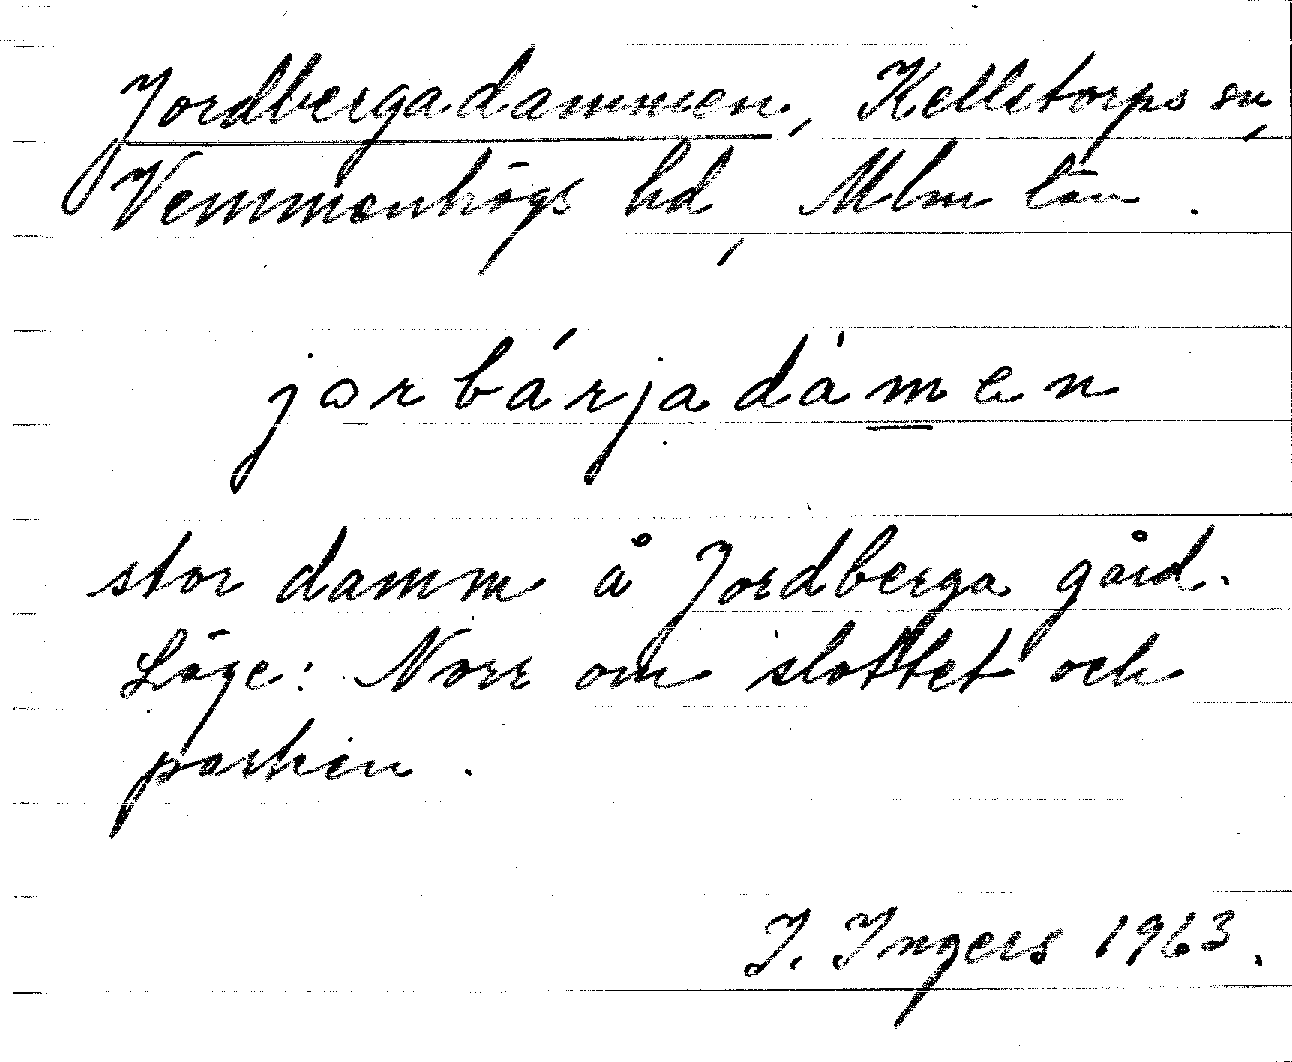 Jordbergadammen, Kellstorps sn,
Vemmenhögs hd, Mlm län.
jorbárjadàmen
stor damm å Jordberga gård.
Läge: Norr om slottet och
parken.
I. Ingers 1963.